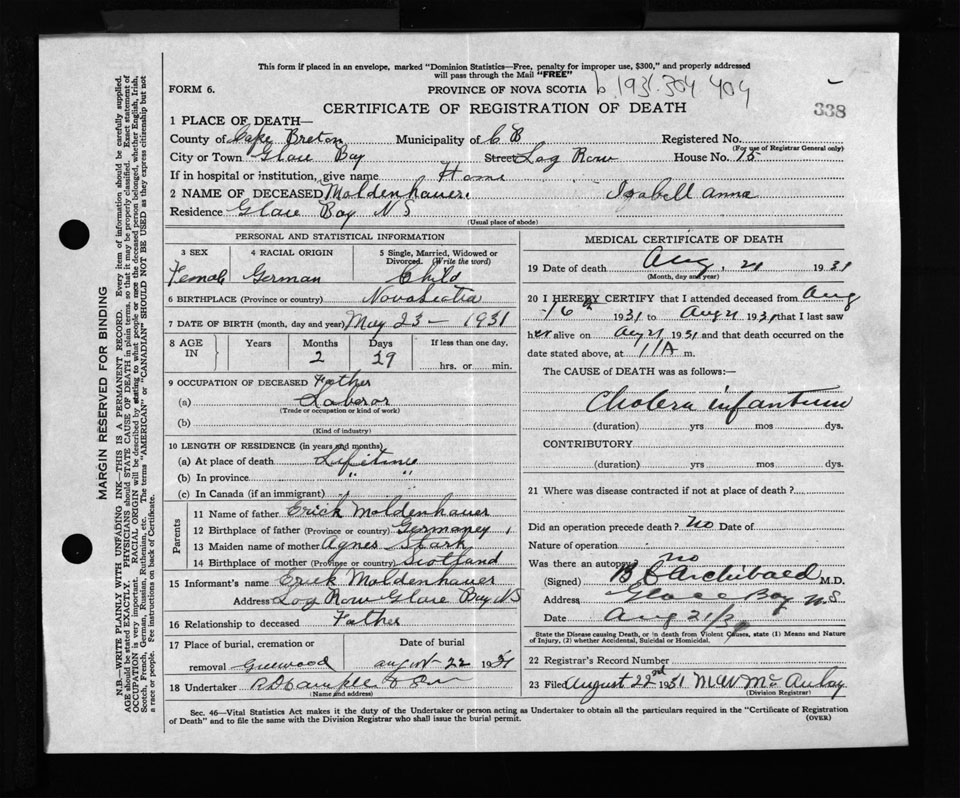 This form if placed in an envelope, marked "Dominion Statistics—Free, penalty for improper use, $300," and properly addressed
will pass through the Mail "FREE"
FORM 6.
PROVINCE OF NOVA SCOTIA b.1931.304 404
338
CERTIFICATE OF REGISTRATION OF DEATH
1 PLACE OF DEATH—
County of Cape Breton Municipality of C B Registered No.
(For use of Registrar General only)
City or Town Glace Bay Street Log Row House No. 15
If in hospital or institution, give name Home
2 NAME OF DECEASED Moldenhauer. Izabell Anna
Residence Glace Bay N S
(Usual place of abode)
PERSONAL AND STATISTICAL INFORMATION
3 SEX 4 RACIAL ORIGIN 5 Single, Married, Widowed or
Divorced. (Write the word)
Female German Child
6 BIRTHPLACE (Province or country) Nova Scotia
7 DATE OF BIRTH (month, day and year) May 23 - 1931
8 AGE IN Years Months Days If less than one day.
2 29 hrs. or min.
9 OCCUPATION OF DECEASED Father
(a) Laboror
(Trade or occupation or kind of work)
(b)
(Kind of industry)
10 LENGTH OF RESIDENCE (in years and months)
(a) At place of death Lifetime
(b) In province " "
(c) In Canada (if an immigrant) "
Parents
11 Name of father Erick Moldenhauer
12 Birthplace of father (Province or country) Germaney
13 Maiden name of mother Agnes Stark
14 Birthplace of mother (Province or country) Scotland
15 Informant's name Erick Moldenhauer
Address Log Row Glace Bay N S
16 Relationship to deceased Father
17 Place of burial, cremation or Date of burial
removal Greenwood August 22 1931
18 Undertaker
(Name and address)
MEDICAL CERTIFICATE OF DEATH
19 Date of death Aug. 21 1931
(Month, day and year)
20 I HEREBY CERTIFY that I attended deceased from Aug
16th 1931 to Aug 21 1931 that I last saw
her alive on Aug 21 1931 and that death occurred on
date stated above, at 11 A m.
The CAUSE of DEATH was as follows:—
Cholera infantum
(duration) yrs mos dys.
CONTRIBUTORY
(duration) yrs mos dys.
21 Where was disease contracted if not at place of death?
Did an operation precede death? no Date of
Nature of operation
Was there an autopsy? no
(Signed) Archibald M.D.
Address Glace Bay N S
Date Aug 21/31
State the Disease causing Death, or in death from Violent Causes, state (1) Means and Nature
of Injury, (2) whether Accidental, Suicidal or Homicidal.
22 Registrar's Record Number
23 Filed August 22nd 1931 M W McAulay
(Division Registrar)
Sec. 46—Vital Statistics Act makes it the duty of the Undertaker or person acting as Undertaker to obtain all the particulars required in the "Certificate of Registration
of Death" and to file the same with the Division Registrar who shall issue the burial permit. (OVER)
MARGIN RESERVED FOR BINDING
N.B.—WRITE PLAINLY WITH UNFADING INK—THIS IS A PERMANENT RECORD. Every item of information should be carefully supplied.
AGE should be stated EXACTLY. PHYSICIANS should STATE CAUSE OF DEATH in plain terms, so that it may be properly classified. Exact statement of
OCCUPATION is very important. RACIAL ORIGIN will be described by stating to what people or race the deceased person belonged, whether English, Irish,
Scotch, French, German, Russian, Ruthenian, etc. The terms "AMERICAN" or "CANADIAN" SHOULD NOT BE USED as they express citizenship but not
a race or people. See instructions on back of Certificate.